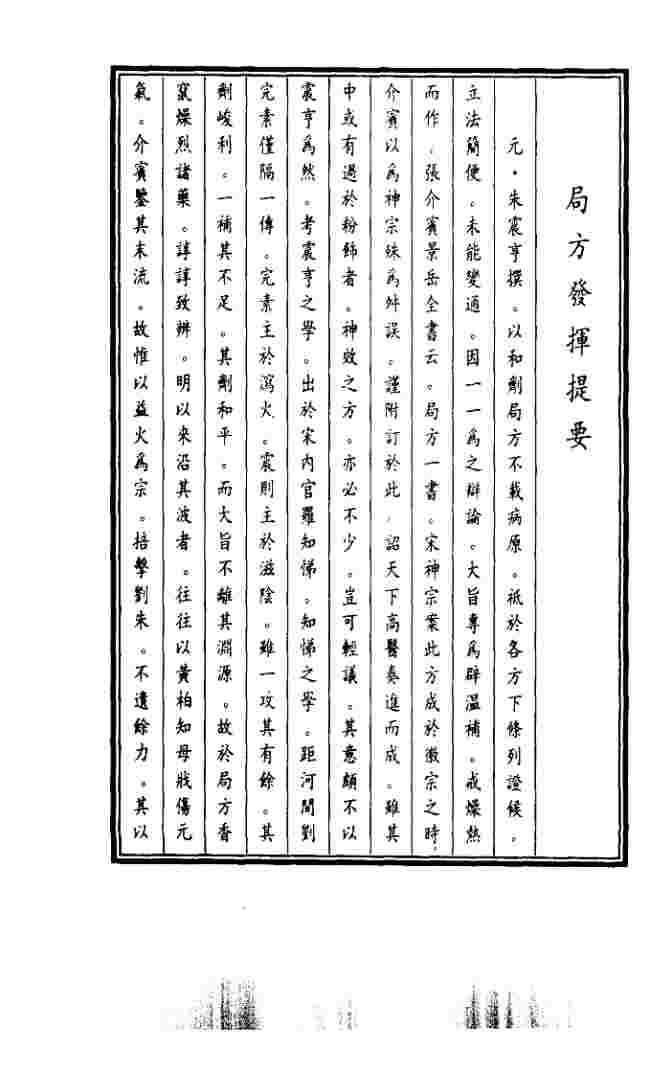 局方發揮提要
元·朱震亨撰。以和劑局方不載病原。祇於各方下條列證候。
立法簡便。未能變通。因一一為之辯論。大旨專為辟溫補。戒燥熱
而作。張介賓景岳全書云。局方一書。宋神宗案此方成於徽宗之時,
介賓以為神宗殊為舛誤。謹附訂於此,詔天下高醫奏進而成。雖其
中或有過於粉飾者。神效之方。亦必不少。豈可輕議。其意頗不以
震亨為然。考震亨之學。出於宋內官羅知悌。知悌之學。距河間劉
完素僅隔一傳。完素主於瀉火。震則主於滋陰。雖一攻其有餘。其
劑峻利。一補其不足。其劑和平。而大旨不離其淵源。故於局方香
竄燥烈諸藥。諄諄致辨。明以來沿其波者。往往以黃柏知母戕傷元
氣。介賓鑒其末流。故惟以益火為宗。掊擊劉朱。不遺餘力。其以